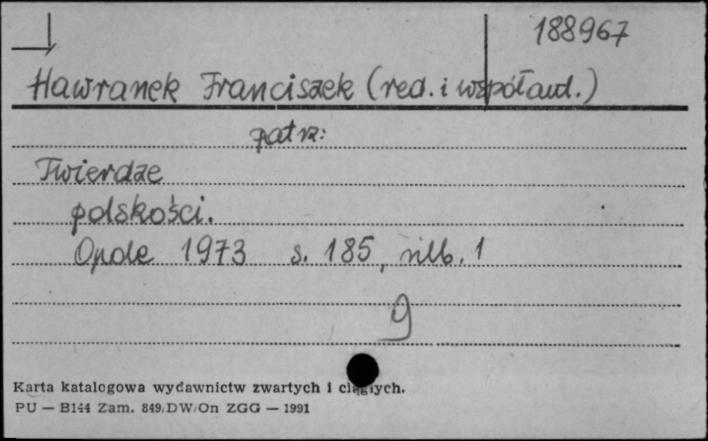 188967
Hawranek Franciszek (red. i współaut.)
patrz:
Twierdze
polskości.
Opole 1973 s. 185, nlb. 1
g
Karta katalogowa wydawnictw zwartych i ciągłych.
PU — B144 Zam. 849/DW/On ZGG — 1991